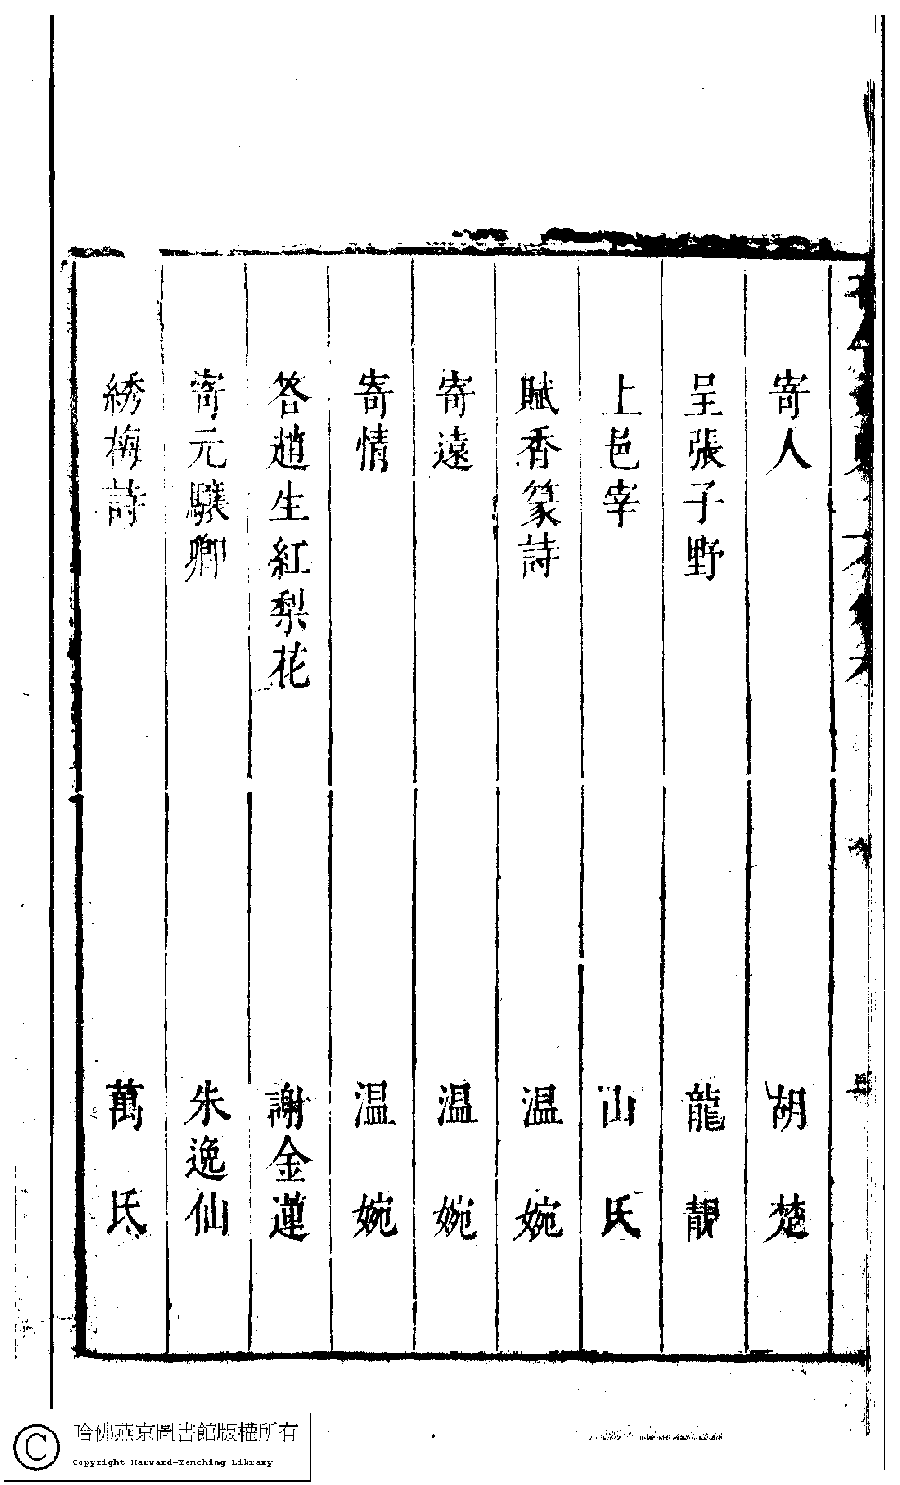 寄人 胡楚
呈張子野 龍靚
上邑宰 山氏
賦香篆詩 温婉
寄遠 温婉
寄情 温婉
答趙生紅梨花 謝金蓮
寄元驥卿 朱逸仙
綉梅詩 萬氏
哈佛燕京圖書館版權所有
Copyright Harvard-Yenching Library